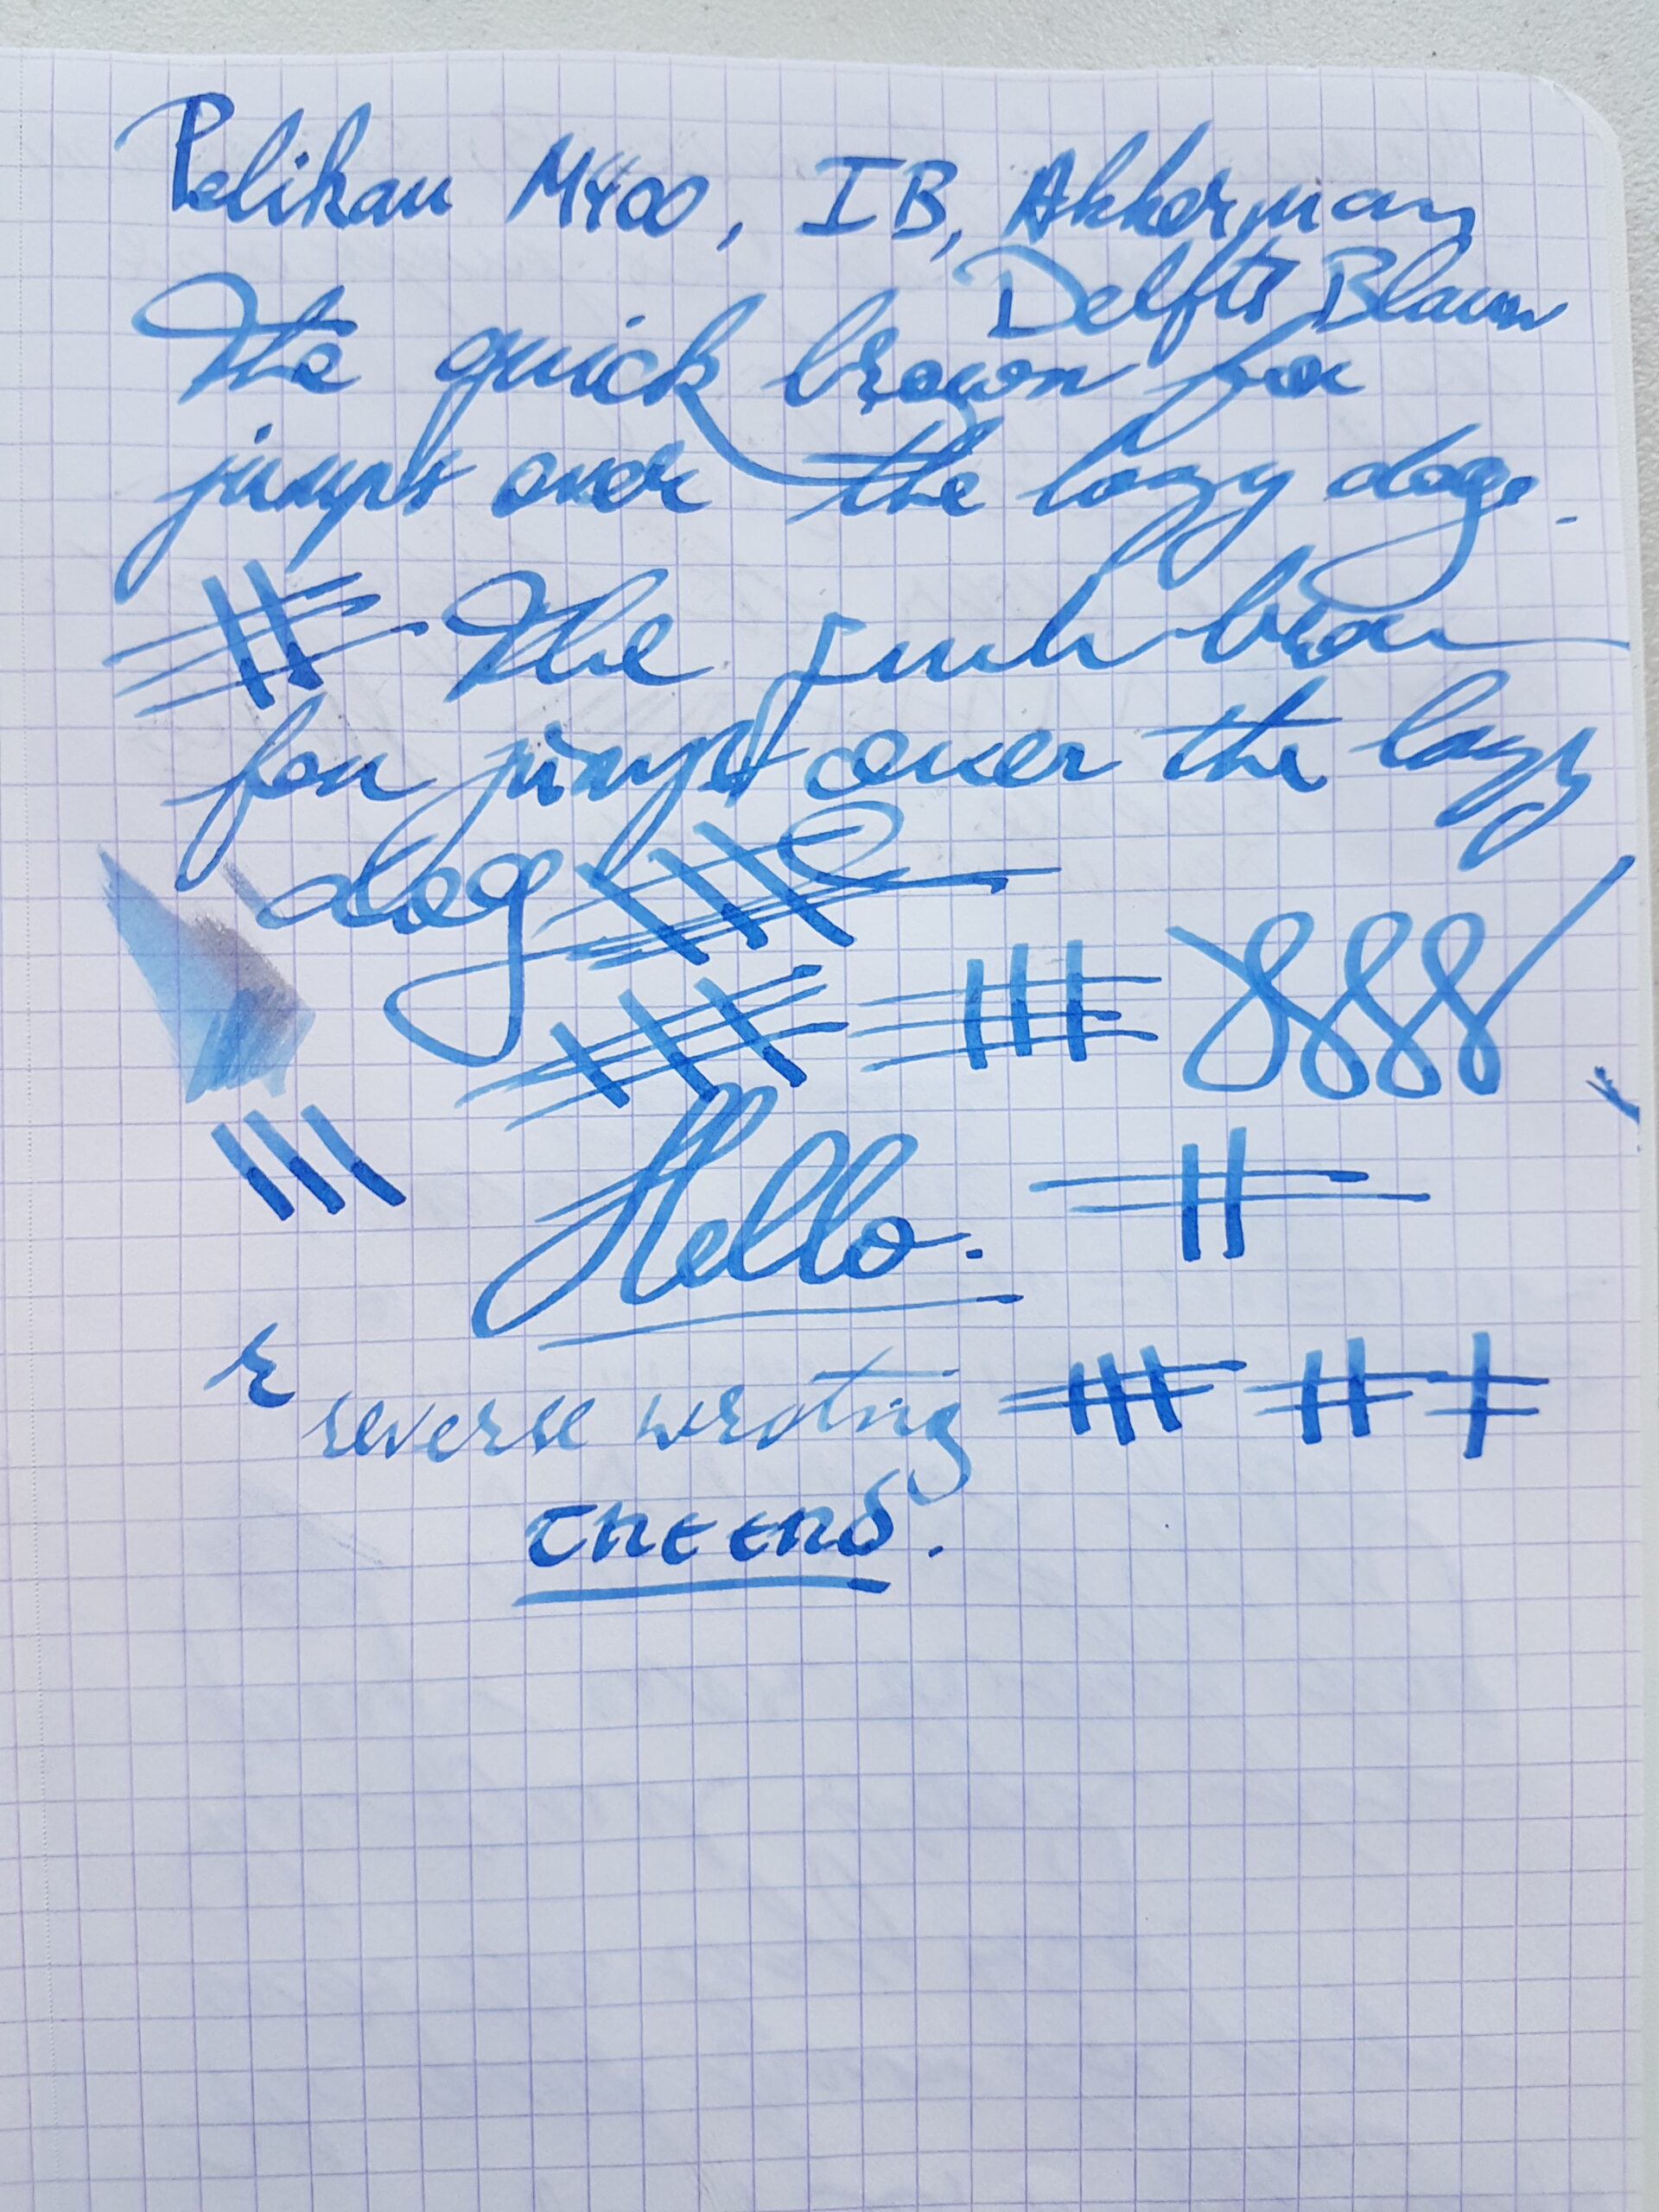 Pelikan M400, IB, Akkerman
Delfts Blauw
The quick brown fox
jumps over the lazy dog.
The
fox jumps over the lazy
dog
Hello.
reverse writing
THE END.